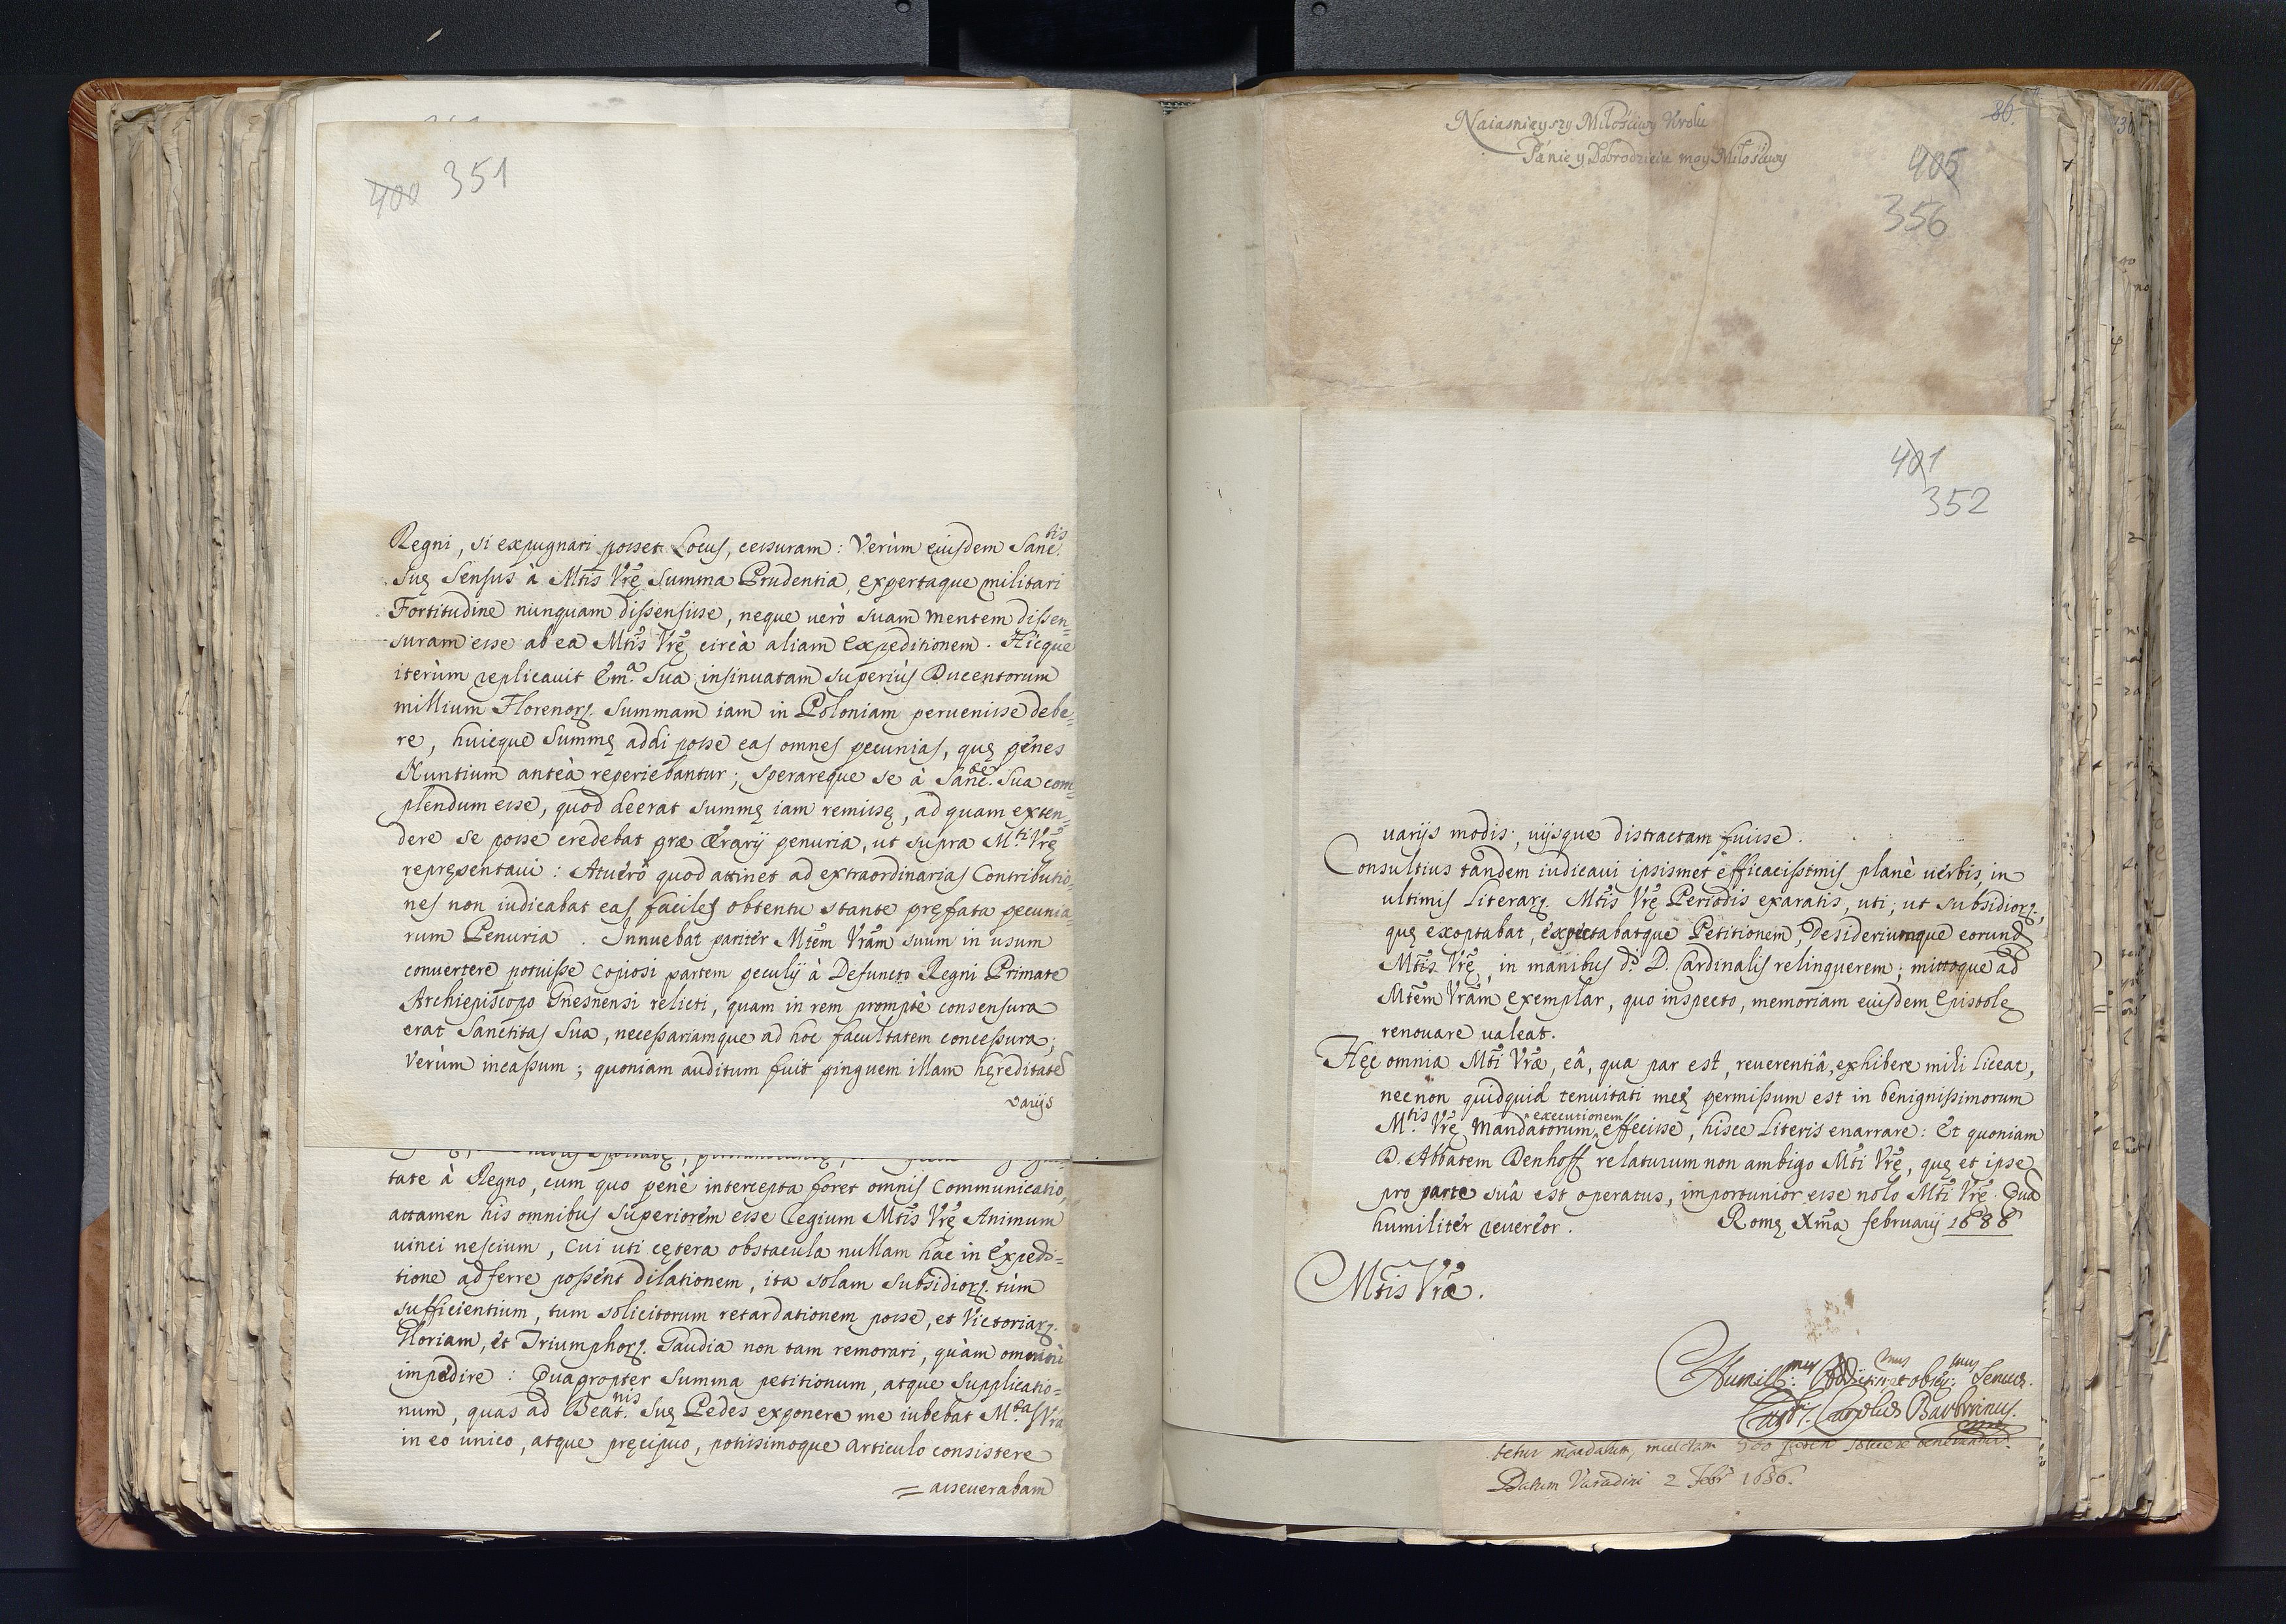 400 351
Regni, si expugnari posset Locus, cessuram: Verùm eiusdem Sanc.tis
Suę Sensus à Mtis Vrę summa Prudentia, expertaque militari
Fortitudine nunquam dissensisse, neque uerò suam mentem dissen=
suram esse ab ea Mtis Vrę circà aliam Expeditionem. Hicque
iterùm replicauit Em.a Sua insinuatam superiùs Ducentorum
millium Florenorz. Summam iam in Poloniam peruenisse debe=
re, huicque Summę addi posse eas omnes pecunias, quę penes
Nuntium anteà reperiebantur; sperareque se à Sanc. Sua com=
plendum esse, quod deerat summę iam remissę, ad quam exten=
dere se posse credebat præ Ærarij penuria, ut supra M.ti Vrę
repręsentaui: Atuerò quod attinet ad extraordinarias Contributio=
nes non iudicabat eas faciles obtentu stante pręfata pecunia=
rum Penuria. Innuebat pariter Mtem Vram suum in usum
conuertere potuisse copiosi partem peculij à Defuncto Regni Primate
Archiepiscopo Gnesnensi relicti, quam in rem promptè consensura
erat Sanctitas Sua, necessariamque ad hoc facultatem concessura;
Verùm incassum; quoniam auditum fuit pinguem illam hęreditatē
varijs
tate à Regno, cum quo penè intercepta foret omnis Communicatio,
attamen his omnibus Superiorem esse Regium Mtis Vrę Animum
uinci nescium, Cui uti cętera obstacula nullam hac in Expedi=
tione adferre possent dilationem, ita solam Subsidiorz. tùm
sufficientium, tum solicitorum retardationem posse, et Victoriarz.
Gloriam, et Triumphorz. Gaudia non tam remorari, quàm omninò
impedire: Quapropter Summa petitionum, atque Supplicatio=
num, quas ad Beat.nis Suę Pedes exponere me iubebat M.tas Vra
in eo unico, atque pręcipuo, potissimoque articulo consistere
= asseuerabam
Naiasnieyszy Miłościwy Krolu
Panie y Dobrodzieiu moy Miłościwy
86.
405
356
401
352
uarijs modis, uijsque distractam fuisse.
Consultius tandem iudicaui ipsismet efficacissimis planè uerbis in
ultimis Literarz. Mtis Vrę Periodis exaratis, uti; ut subsidiorz.,
quę exoptabat, expectabatque Petitionem, Desideriumque eorund
Mtis Vrę, in manibus d.i D. Cardinalis relinquerem; mittoque ad
Mtem Vram exemplar, quo inspecto, memoriam eiusdem Epistolę
renouare ualeat.
Hęc omnia Mti Vræ, eâ, qua par est, reuerentiâ, exhibere mihi liceat,
necnon quidquid tenuitati meę permissum est in benignissimorum
M.tis Vrę Mandatorum executionem effecisse, hisce Literis enarrare: Et quoniam
D. Abbatem Denhoff relaturum non ambigo Mti Vrę, quę et ipse
pro parte suâ est operatus, importunior esse nolo Mti Vrę. Quā
humiliter reuereor. Romę Xma februarij 1686
Mtis Vræ.
Humill.mus Addictiss.mus et obseq.mus Seruus.
Card. Carolus Barberinus.
Datum Varadini 2 Febr 1686.